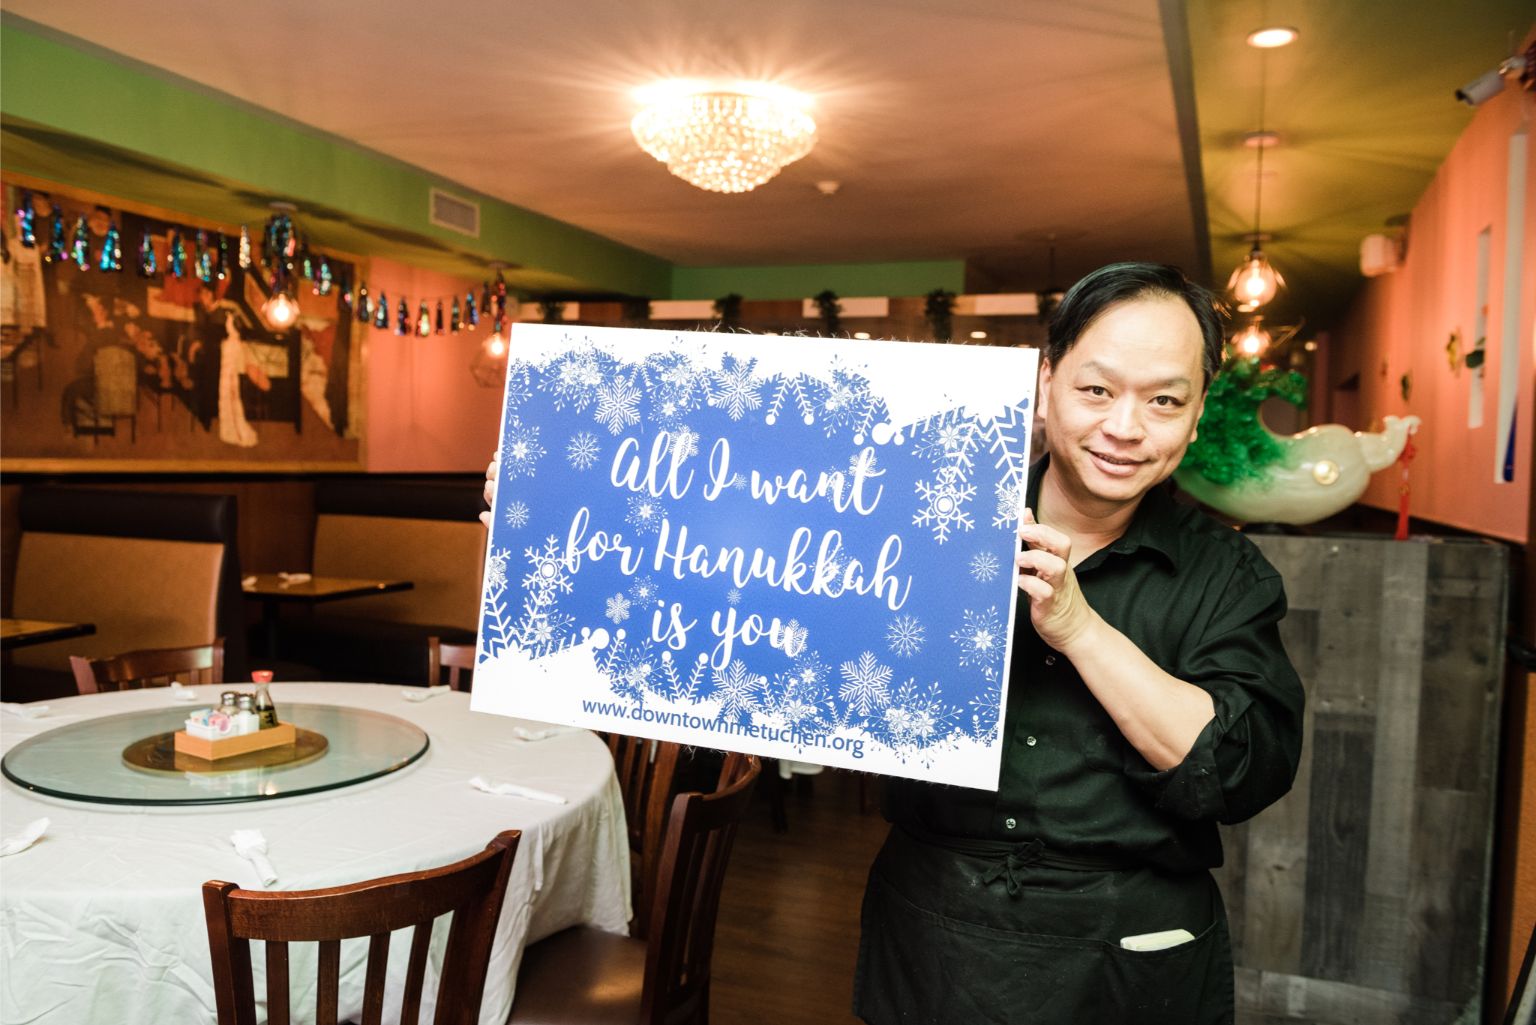 All I want
for Hanukkah
is you
www.downtownmetuchen.org